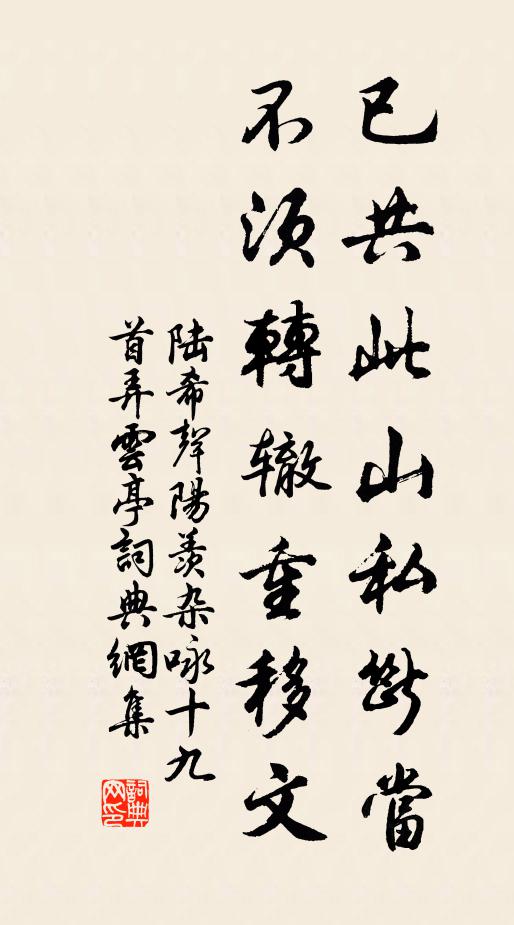 已共此山私斷當
不須轉辙重移文
陸希聲陽羨杂咏十九
首弄雲亭詞典網集
詞典
网印